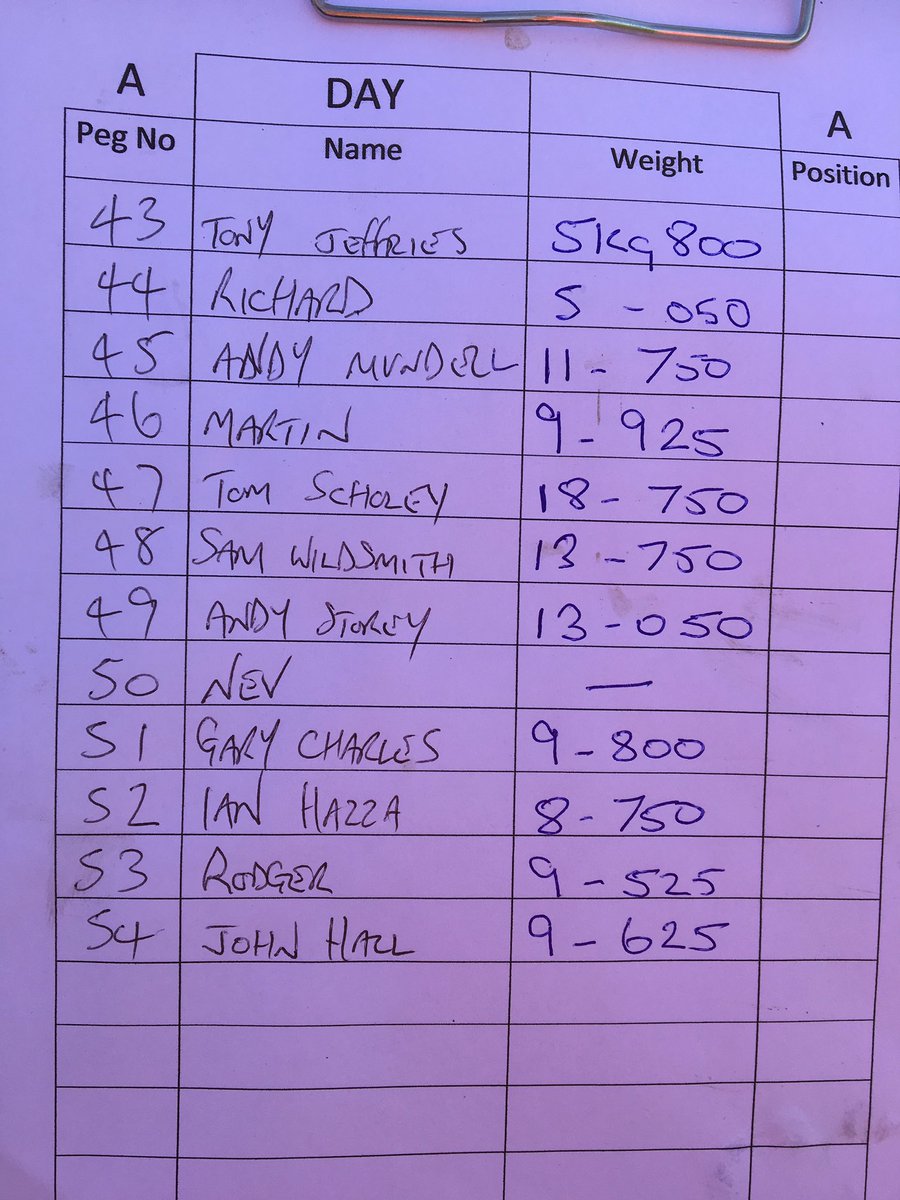 A DAY A
Peg No Name Weight Position
43 TONY JEFFRIES 5KG800
44 RICHARD 5 - 050
45 ANDY MUNDELL 11 - 750
46 MARTIN 9 - 925
47 TOM SCHOLEY 18 - 750
48 SAM WILDSMITH 13 - 750
49 ANDY STOREY 13 - 050
50 NEV —
51 GARY CHARLES 9 - 800
52 IAN HAZZA 8 - 750
53 RODGER 9 - 525
54 JOHN HALL 9 - 625